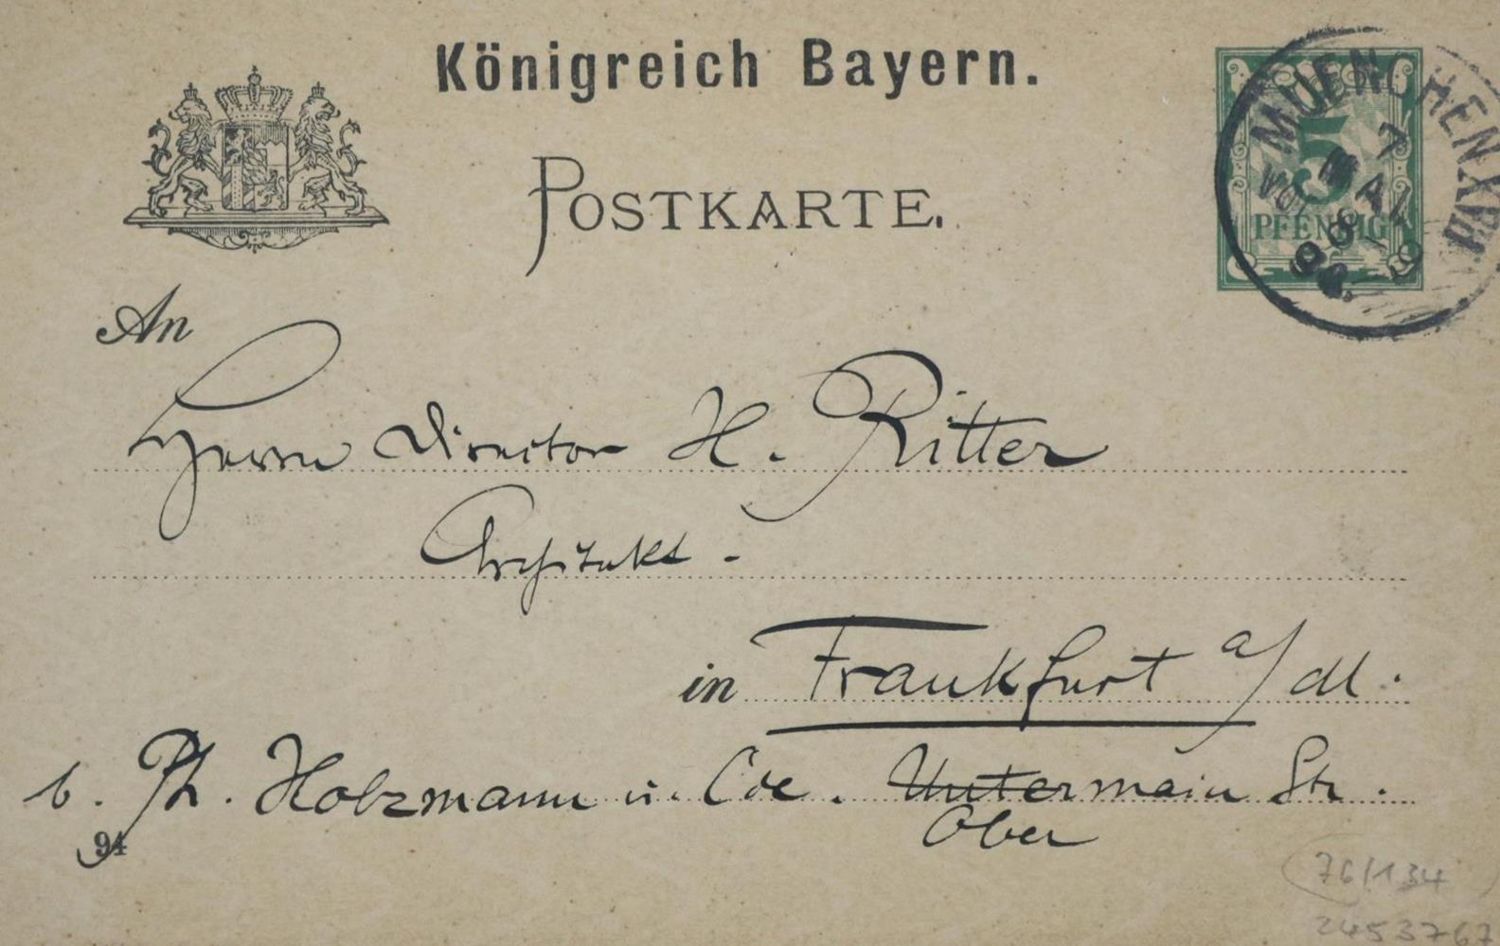 Königreich Bayern.
POSTKARTE.
5
PFENNIG
MUENCHEN X PAK
7
MAI
VOR
8-9
94.
An
Herrn Director H. Ritter
Architekt -
in Frankfurt a/M.
b. Ph. Holzmann u. Cie. Untermain Str.
Ober
94
76/134
2453767